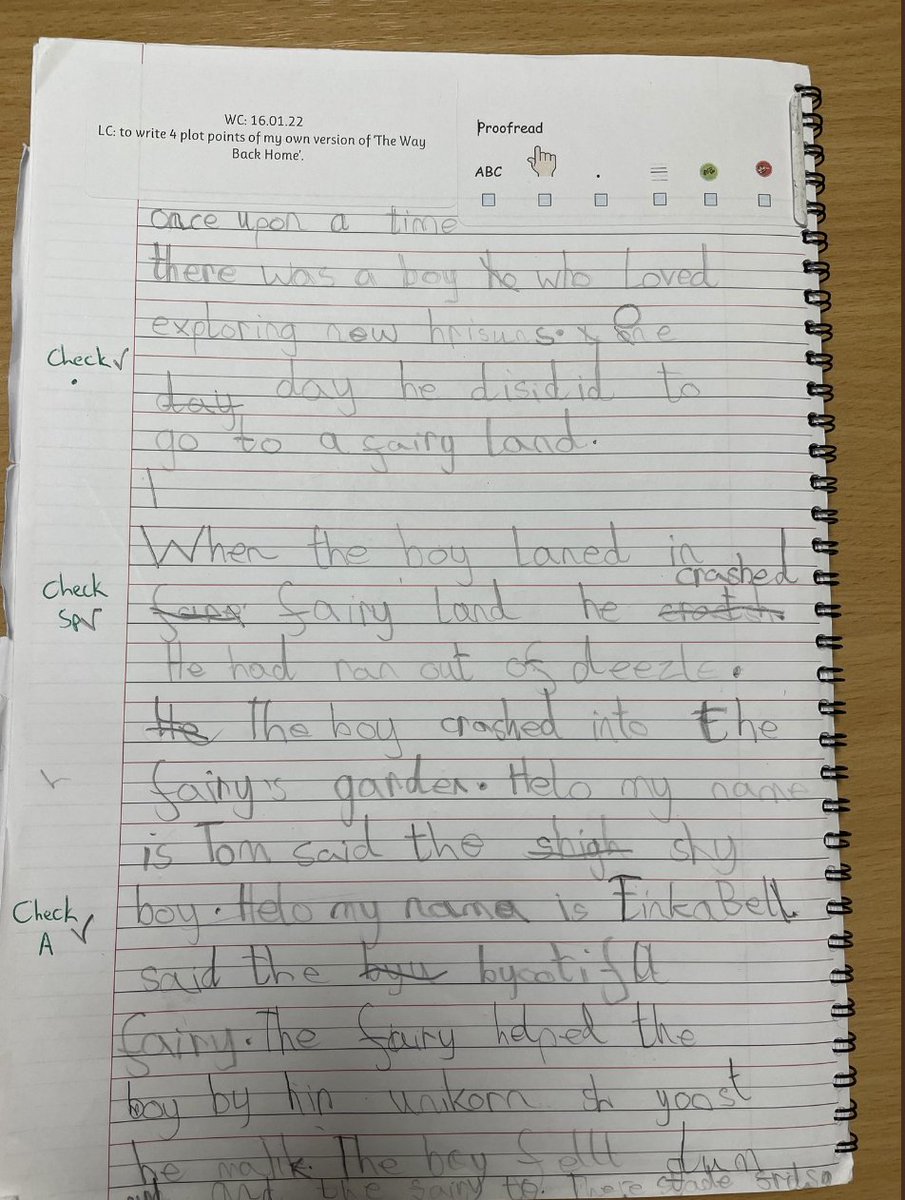 WC: 16.01.22
LC: to write 4 plot points of my own version of 'The Way
Back Home'.
Proofread
ABC
.
once upon a time
there was a boy he who loved
exploring new hrisuns. x One
Check ✓
.
day day he disidid to
go to a fairy land.
When the boy laned in
Check
Sp✓
crashed
fairy land he
He had ran out of deezle.
He The boy crashed into the
fairy's garden. Helo my name
is Tom said the shigh shy
boy. Helo my name is TinkaBell
Check
A ✓
said the byu byootifl
fairy. The fairy helped the
boy by hir unikorn sh yoost
he majik. The boy felll
and the fairy to. There